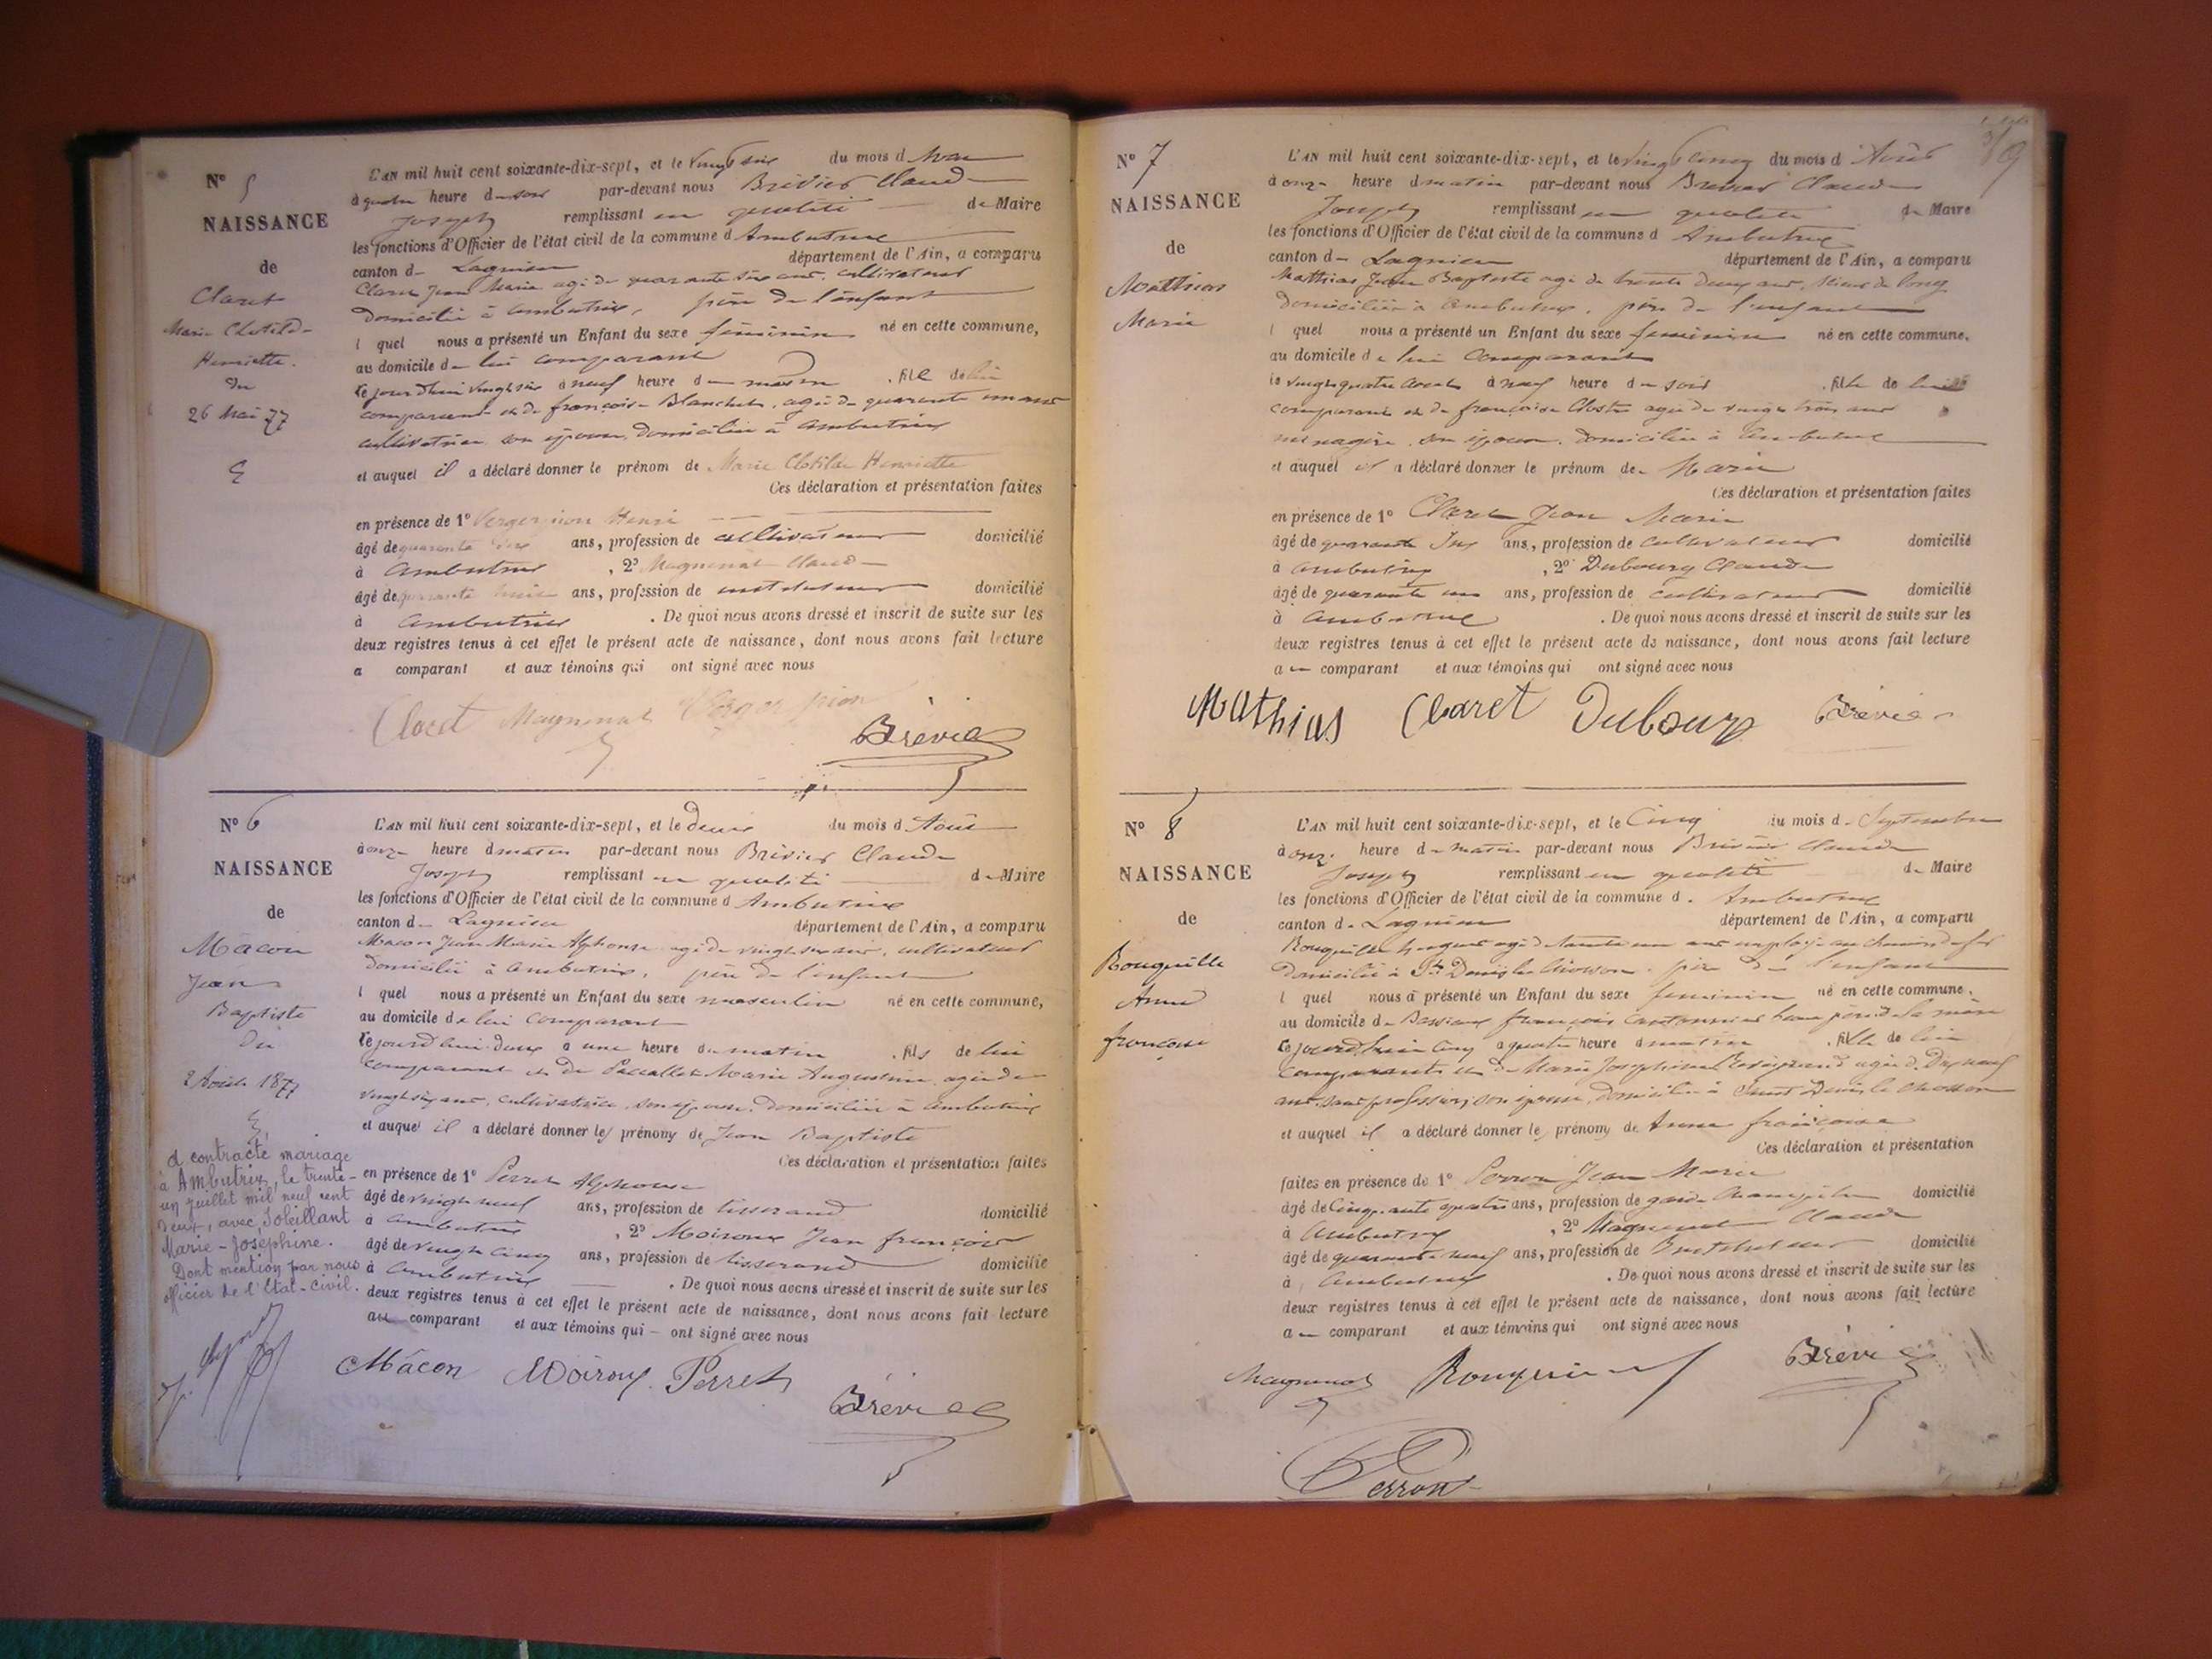 N° 5
NAISSANCE
de
Claret
Marie Clotilde
Henriette.
du
26 Mai 77
L'AN mil huit cent soixante-dix-sept, et le vingt six du mois d Mai
à quatre heure du soir par-devant nous Brévier Claude
Joseph remplissant en qualité de Maire
les fonctions d'Officier de l'état civil de la commune d Ambutrix
canton de Lagnieu département de l'Ain, a comparu
Claret Jean Marie agé de quarante six ans, cultivateur
domicilié à Ambutrix, père de l'enfant
l quel nous a présenté un Enfant du sexe féminin né en cette commune,
au domicile de lui comparant
le jourd'hui vingt six à neuf heure du matin . fille de lui
comparant et de françoise Blanchet, agée de quarante un ans
cultivatrice son épouse, domiciliée à Ambutrix
et auquel il a déclaré donner le prénom de Marie Clotilde Henriette
Ces déclaration et présentation faites
en présence de 1° Henri
âgé de quarante ans, profession de cultivateur domicilié
à Ambutrix , 2° Magnenat Claude
âgé de quarante huit ans, profession de instituteur domicilié
à Ambutrix . De quoi nous avons dressé et inscrit de suite sur les
deux registres tenus à cet effet le présent acte de naissance, dont nous avons fait lecture
a comparant et aux témoins qui ont signé avec nous
Claret Magnenat Brévier
N° 6
NAISSANCE
de
Mâcon
Jean
Baptiste
Du
2 Août 1877
a contracté mariage
à Ambutrix, le trente-
un juillet mil neuf cent
deux, avec Soleillant
Marie-Joséphine.
Dont mention par nous
officier de l'Etat-civil.
L'AN mil huit cent soixante-dix-sept, et le deux du mois d Août
à onze heure du matin par-devant nous Brévier Claude
Joseph remplissant en qualité de Maire
les fonctions d'Officier de l'état civil de la commune d Ambutrix
canton de Lagnieu département de l'Ain, a comparu
Macon Jean Marie Alphonse agé de vingt ans, cultivateur
domicilié à Ambutrix, père de l'enfant
l quel nous a présenté un Enfant du sexe masculin né en cette commune,
au domicile de lui comparant
le jourd'hui deux à une heure du matin . fils de lui
comparant et de Marie Augustine agée de
vingt six ans, cultivatrice, son épouse, domiciliée à Ambutrix
et auquel il a déclaré donner les prénoms de Jean Baptiste
Ces déclaration et présentation faites
en présence de 1° Perret Alphonse
âgé de vingt neuf ans, profession de tisserand domicilié
à Ambutrix , 2° Moiroux Jean françois
âgé de vingt cinq ans, profession de tisserand domicilié
à Ambutrix . De quoi nous avons dressé et inscrit de suite sur les
deux registres tenus à cet effet le présent acte de naissance, dont nous avons fait lecture
au comparant et aux témoins qui – ont signé avec nous
Mâcon Moiroux Perret
Brévier
N° 7
NAISSANCE
de
Matthias
Marie
L'AN mil huit cent soixante-dix-sept, et le vingt cinq du mois d Août
à onze heure du matin par-devant nous Brévier Claude
Joseph remplissant en qualité de Maire
les fonctions d'Officier de l'état civil de la commune d Ambutrix
canton de Lagnieu département de l'Ain, a comparu
Matthias Jean Baptiste agé de trente deux ans, scieur de long
domicilié à Ambutrix, père de l'enfant
l quel nous a présenté un Enfant du sexe féminin né en cette commune,
au domicile de lui comparant
le vingt quatre août à neuf heure du soir . fille de lui
comparant et de françoise agée de vingt trois ans
ménagère, son épouse, domiciliée à Ambutrix
et auquel il a déclaré donner le prénom de Marie
Ces déclaration et présentation faites
en présence de 1° Claret Jean Marie
âgé de quarante six ans, profession de cultivateur domicilié
à Ambutrix , 2° Dubourg Claude
âgé de quarante un ans, profession de cultivateur domicilié
à Ambutrix . De quoi nous avons dressé et inscrit de suite sur les
deux registres tenus à cet effet le présent acte de naissance, dont nous avons fait lecture
au comparant et aux témoins qui ont signé avec nous
Mathias Claret Dubourg Brévier
N° 8
NAISSANCE
de
Rouquille
Anne
françoise
L'AN mil huit cent soixante-dix-sept, et le Cinq du mois de Septembre
à onze heure du matin par-devant nous Brévier Claude
Joseph remplissant en qualité de Maire
les fonctions d'Officier de l'état civil de la commune d. Ambutrix
canton de Lagnieu département de l'Ain, a comparu
Rouquille agé de trente un ans employé au chemin de fer
domicilié à St Denis le Chosson, père de l'enfant
l quel nous a présenté un Enfant du sexe féminin né en cette commune,
au domicile de françois cantonnier beau père de la mère
le jourd'hui cinq à quatre heure du matin . fille de lui
comparant et de Marie Joséphine agée de Dix neuf
ans, sans profession, son épouse, domiciliée à Saint Denis le Chosson
et auquel il a déclaré donner les prénoms de Anne françoise
Ces déclaration et présentation
faites en présence de 1° Perron Jean Marie
âgé de Cinquante quatre ans, profession de garde champêtre domicilié
à Ambutrix , 2° Magnenat Claude
âgé de quarante neuf ans, profession de Instituteur domicilié
à Ambutrix . De quoi nous avons dressé et inscrit de suite sur les
deux registres tenus à cet effet le présent acte de naissance, dont nous avons fait lecture
au comparant et aux témoins qui ont signé avec nous
Magnenat Brévier
Perron